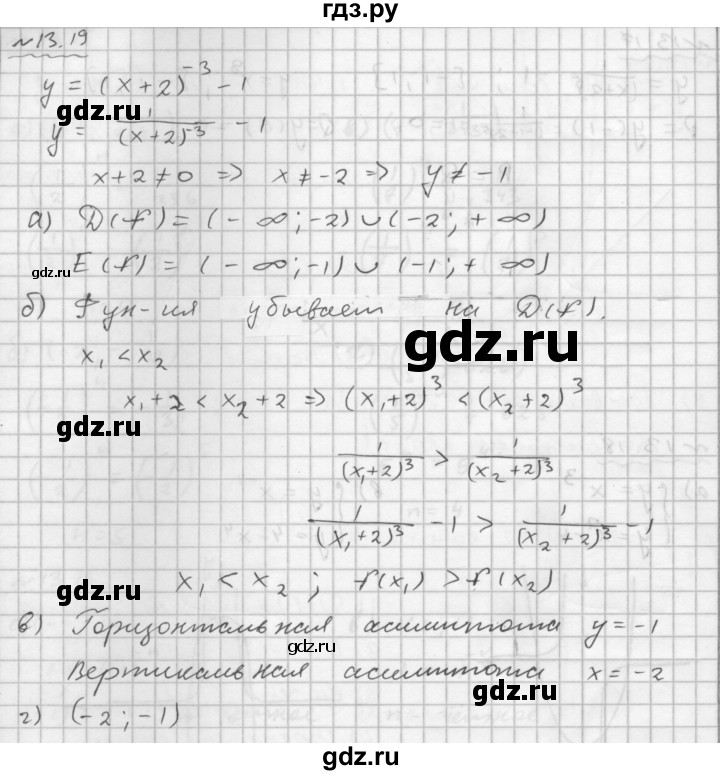 гдз.ру
№13.19
y = (x+2)^-3 - 1
gdz.ru
y = 1/(x+2)^-3 - 1
x+2≠0 => x≠-2 => y≠-1
а) D(f) = (-∞;-2)∪(-2;+∞)
gdz.ru
gdz.ru
E(f) = (-∞;-1)∪(-1;+∞)
б) Фун-ия убывает на D(f).
gdz.ru
x₁ < x₂
x₁+2 < x₂+2 => (x₁+2)^3 < (x₂+2)^3
gdz.ru
1/(x₁+2)^3 > 1/(x₂+2)^3
1/(x₁+2)^3 - 1 > 1/(x₂+2)^3 - 1
gdz.ru
x₁ < x₂ ; f(x₁) > f(x₂)
в) Горизонтальная асимптота y = -1
Вертикальная асимптота x = -2
gdz.ru
г) (-2;-1)
gdz.ru